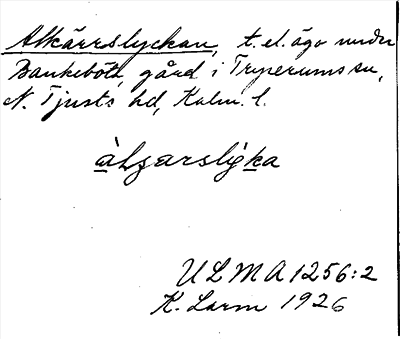 Alkärrslyckan, t. el. ägo under
Bankeböt, gård i Tryserums sn,
N. Tjusts hd, Kalm. l.
àlɟarslyka
ULMA 1256:2
K. Larm 1926